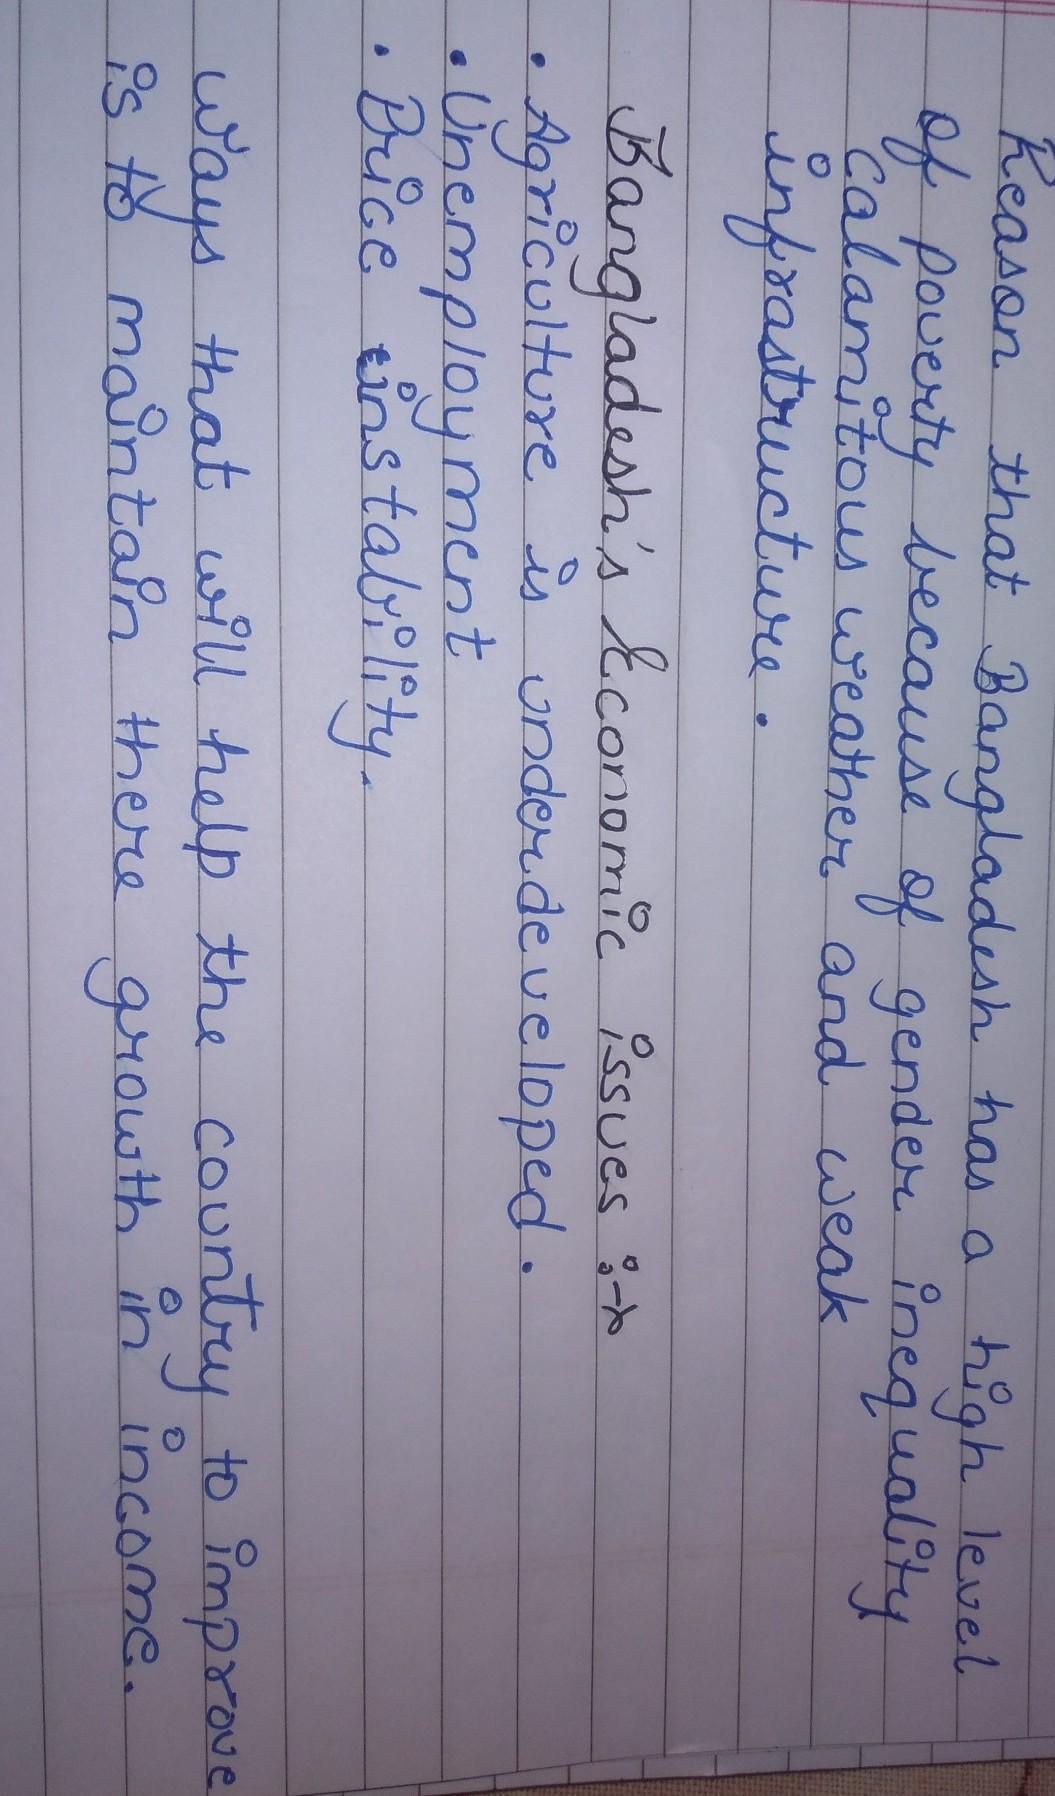 Reason that Bangladesh has a high level
of poverty because of gender inequality
calamitous weather and weak
infrastructure.
Bangladesh's Economic issues :→
• Agriculture is underdeveloped.
• Unemployment
• Price instability.
ways that will help the country to improve
is to maintain there growth in income.